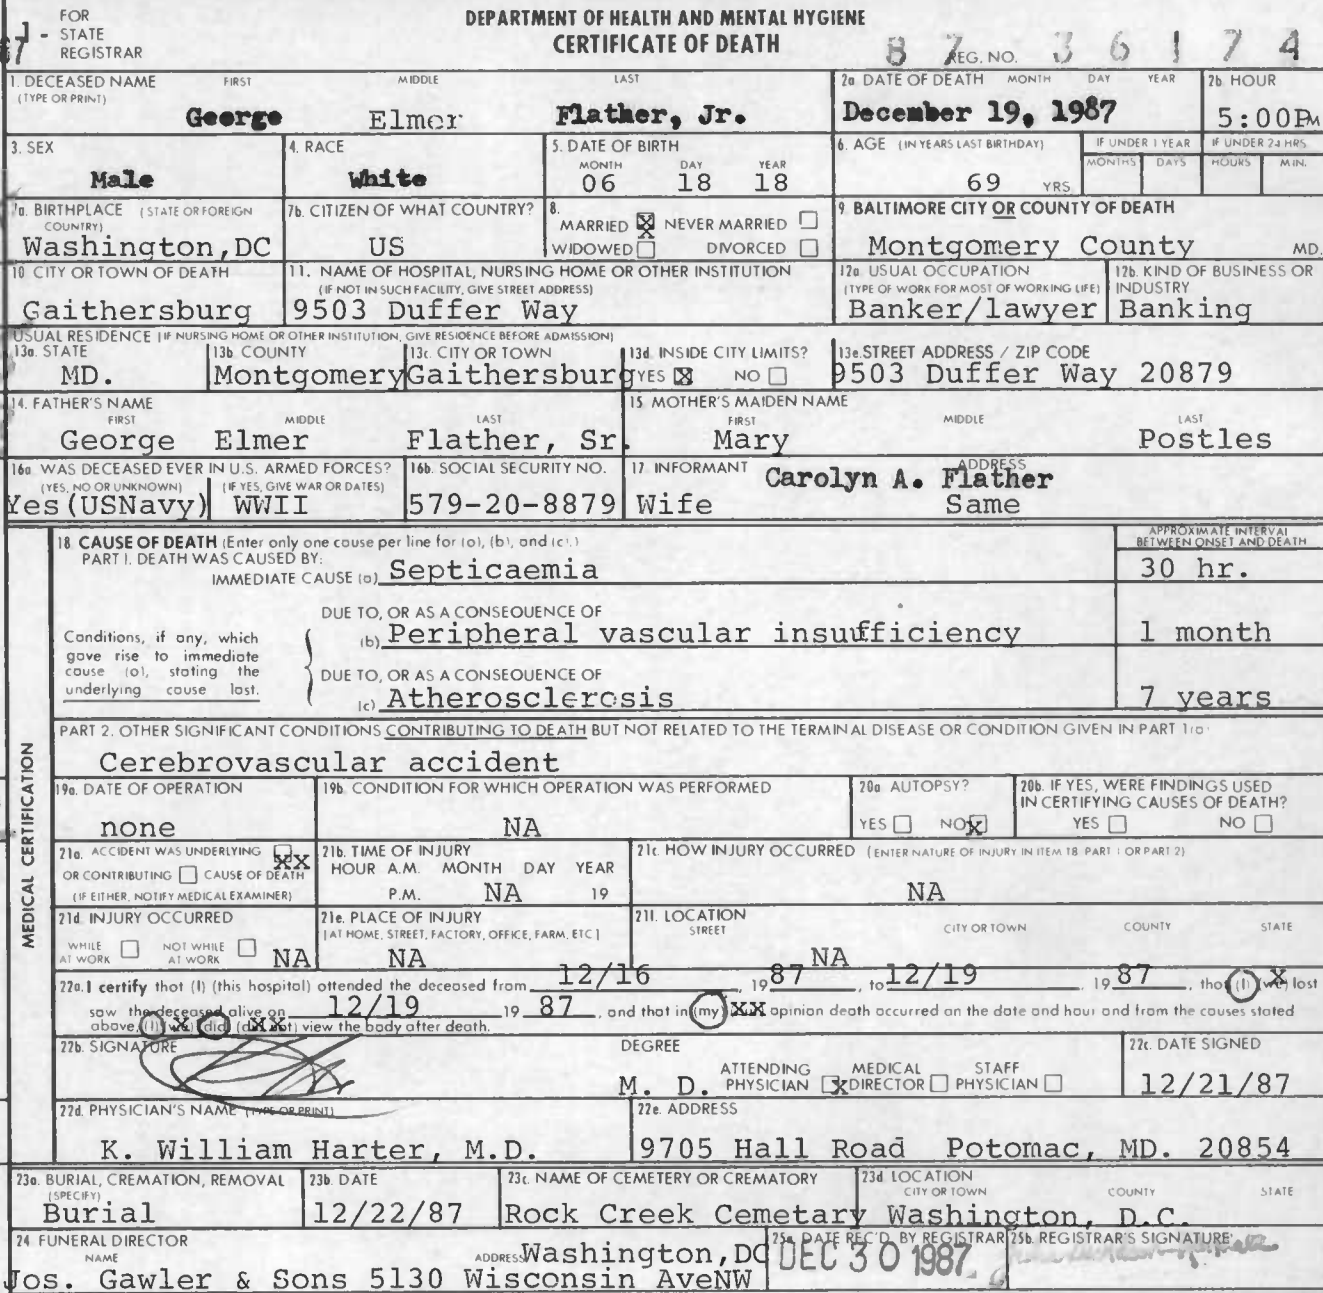 FOR
STATE
REGISTRAR
DEPARTMENT OF HEALTH AND MENTAL HYGIENE
CERTIFICATE OF DEATH
REG. NO. 87 36174
1. DECEASED NAME FIRST MIDDLE LAST
(TYPE OR PRINT)
George Elmer Flather, Jr.
2a DATE OF DEATH MONTH DAY YEAR
December 19, 1987
2b. HOUR
5:00PM
3. SEX
Male
4. RACE
White
5. DATE OF BIRTH
MONTH DAY YEAR
06 18 18
6. AGE (IN YEARS LAST BIRTHDAY)
69 YRS
IF UNDER 1 YEAR
MONTHS DAYS
IF UNDER 24 HRS
HOURS MIN.
7a. BIRTHPLACE (STATE OR FOREIGN
COUNTRY)
Washington,DC
7b. CITIZEN OF WHAT COUNTRY?
US
8.
MARRIED X NEVER MARRIED
WIDOWED DIVORCED
9 BALTIMORE CITY OR COUNTY OF DEATH
Montgomery County MD.
10 CITY OR TOWN OF DEATH
Gaithersburg
11. NAME OF HOSPITAL, NURSING HOME OR OTHER INSTITUTION
(IF NOT IN SUCH FACILITY, GIVE STREET ADDRESS)
9503 Duffer Way
12a. USUAL OCCUPATION
(TYPE OF WORK FOR MOST OF WORKING LIFE)
Banker/lawyer
12b. KIND OF BUSINESS OR
INDUSTRY
Banking
USUAL RESIDENCE (IF NURSING HOME OR OTHER INSTITUTION, GIVE RESIDENCE BEFORE ADMISSION)
13a. STATE
MD.
13b COUNTY
Montgomery
13c. CITY OR TOWN
Gaithersburg
13d INSIDE CITY LIMITS?
YES X NO
13e. STREET ADDRESS / ZIP CODE
9503 Duffer Way 20879
14. FATHER'S NAME
FIRST MIDDLE LAST
George Elmer Flather, Sr.
15 MOTHER'S MAIDEN NAME
FIRST MIDDLE LAST
Mary Postles
16a WAS DECEASED EVER IN U.S. ARMED FORCES?
(YES, NO OR UNKNOWN) (IF YES, GIVE WAR OR DATES)
Yes(USNavy) WWII
16b. SOCIAL SECURITY NO.
579-20-8879
17. INFORMANT ADDRESS
Carolyn A. Flather
Wife Same
MEDICAL CERTIFICATION
18 CAUSE OF DEATH (Enter only one cause per line for (a), (b), and (c).)
APPROXIMATE INTERVAL
BETWEEN ONSET AND DEATH
PART I. DEATH WAS CAUSED BY:
IMMEDIATE CAUSE (a) Septicaemia 30 hr.
DUE TO, OR AS A CONSEQUENCE OF
(b) Peripheral vascular insufficiency 1 month
Conditions, if any, which
gave rise to immediate
cause (a), stating the
underlying cause last.
DUE TO, OR AS A CONSEQUENCE OF
(c) Atherosclerosis 7 years
PART 2. OTHER SIGNIFICANT CONDITIONS CONTRIBUTING TO DEATH BUT NOT RELATED TO THE TERMINAL DISEASE OR CONDITION GIVEN IN PART 1(a)
Cerebrovascular accident
19a. DATE OF OPERATION
none
19b CONDITION FOR WHICH OPERATION WAS PERFORMED
NA
20a AUTOPSY?
YES NO X
20b. IF YES, WERE FINDINGS USED
IN CERTIFYING CAUSES OF DEATH?
YES NO
21a. ACCIDENT WAS UNDERLYING XX
OR CONTRIBUTING CAUSE OF DEATH
(IF EITHER, NOTIFY MEDICAL EXAMINER)
21b. TIME OF INJURY
HOUR A.M. MONTH DAY YEAR
P.M. NA 19
21c. HOW INJURY OCCURRED (ENTER NATURE OF INJURY IN ITEM 18 PART 1 OR PART 2)
NA
21d INJURY OCCURRED
WHILE AT WORK NOT WHILE AT WORK NA
21e. PLACE OF INJURY
(AT HOME, STREET, FACTORY, OFFICE, FARM, ETC)
NA
21f. LOCATION
STREET CITY OR TOWN COUNTY STATE
NA
22a. I certify that (I) (this hospital) attended the deceased from 12/16 1987, to 12/19 1987, that (I) (we) last
saw the deceased alive on 12/19 1987, and that in (my) XX opinion death occurred on the date and hour and from the causes stated
above, (I) (we) (did) (did not) view the body after death.
22b. SIGNATURE
DEGREE
M. D. ATTENDING PHYSICIAN X MEDICAL DIRECTOR STAFF PHYSICIAN
22c. DATE SIGNED
12/21/87
22d. PHYSICIAN'S NAME (TYPE OR PRINT)
K. William Harter, M.D.
22e. ADDRESS
9705 Hall Road Potomac, MD. 20854
23a. BURIAL, CREMATION, REMOVAL
(SPECIFY)
Burial
23b. DATE
12/22/87
23c. NAME OF CEMETERY OR CREMATORY
Rock Creek Cemetary
23d LOCATION
CITY OR TOWN COUNTY STATE
Washington, D.C.
24 FUNERAL DIRECTOR
NAME ADDRESS Washington,DC
Jos. Gawler & Sons 5130 Wisconsin AveNW
25a. DATE REC'D. BY REGISTRAR
DEC 30 1987
25b. REGISTRAR'S SIGNATURE